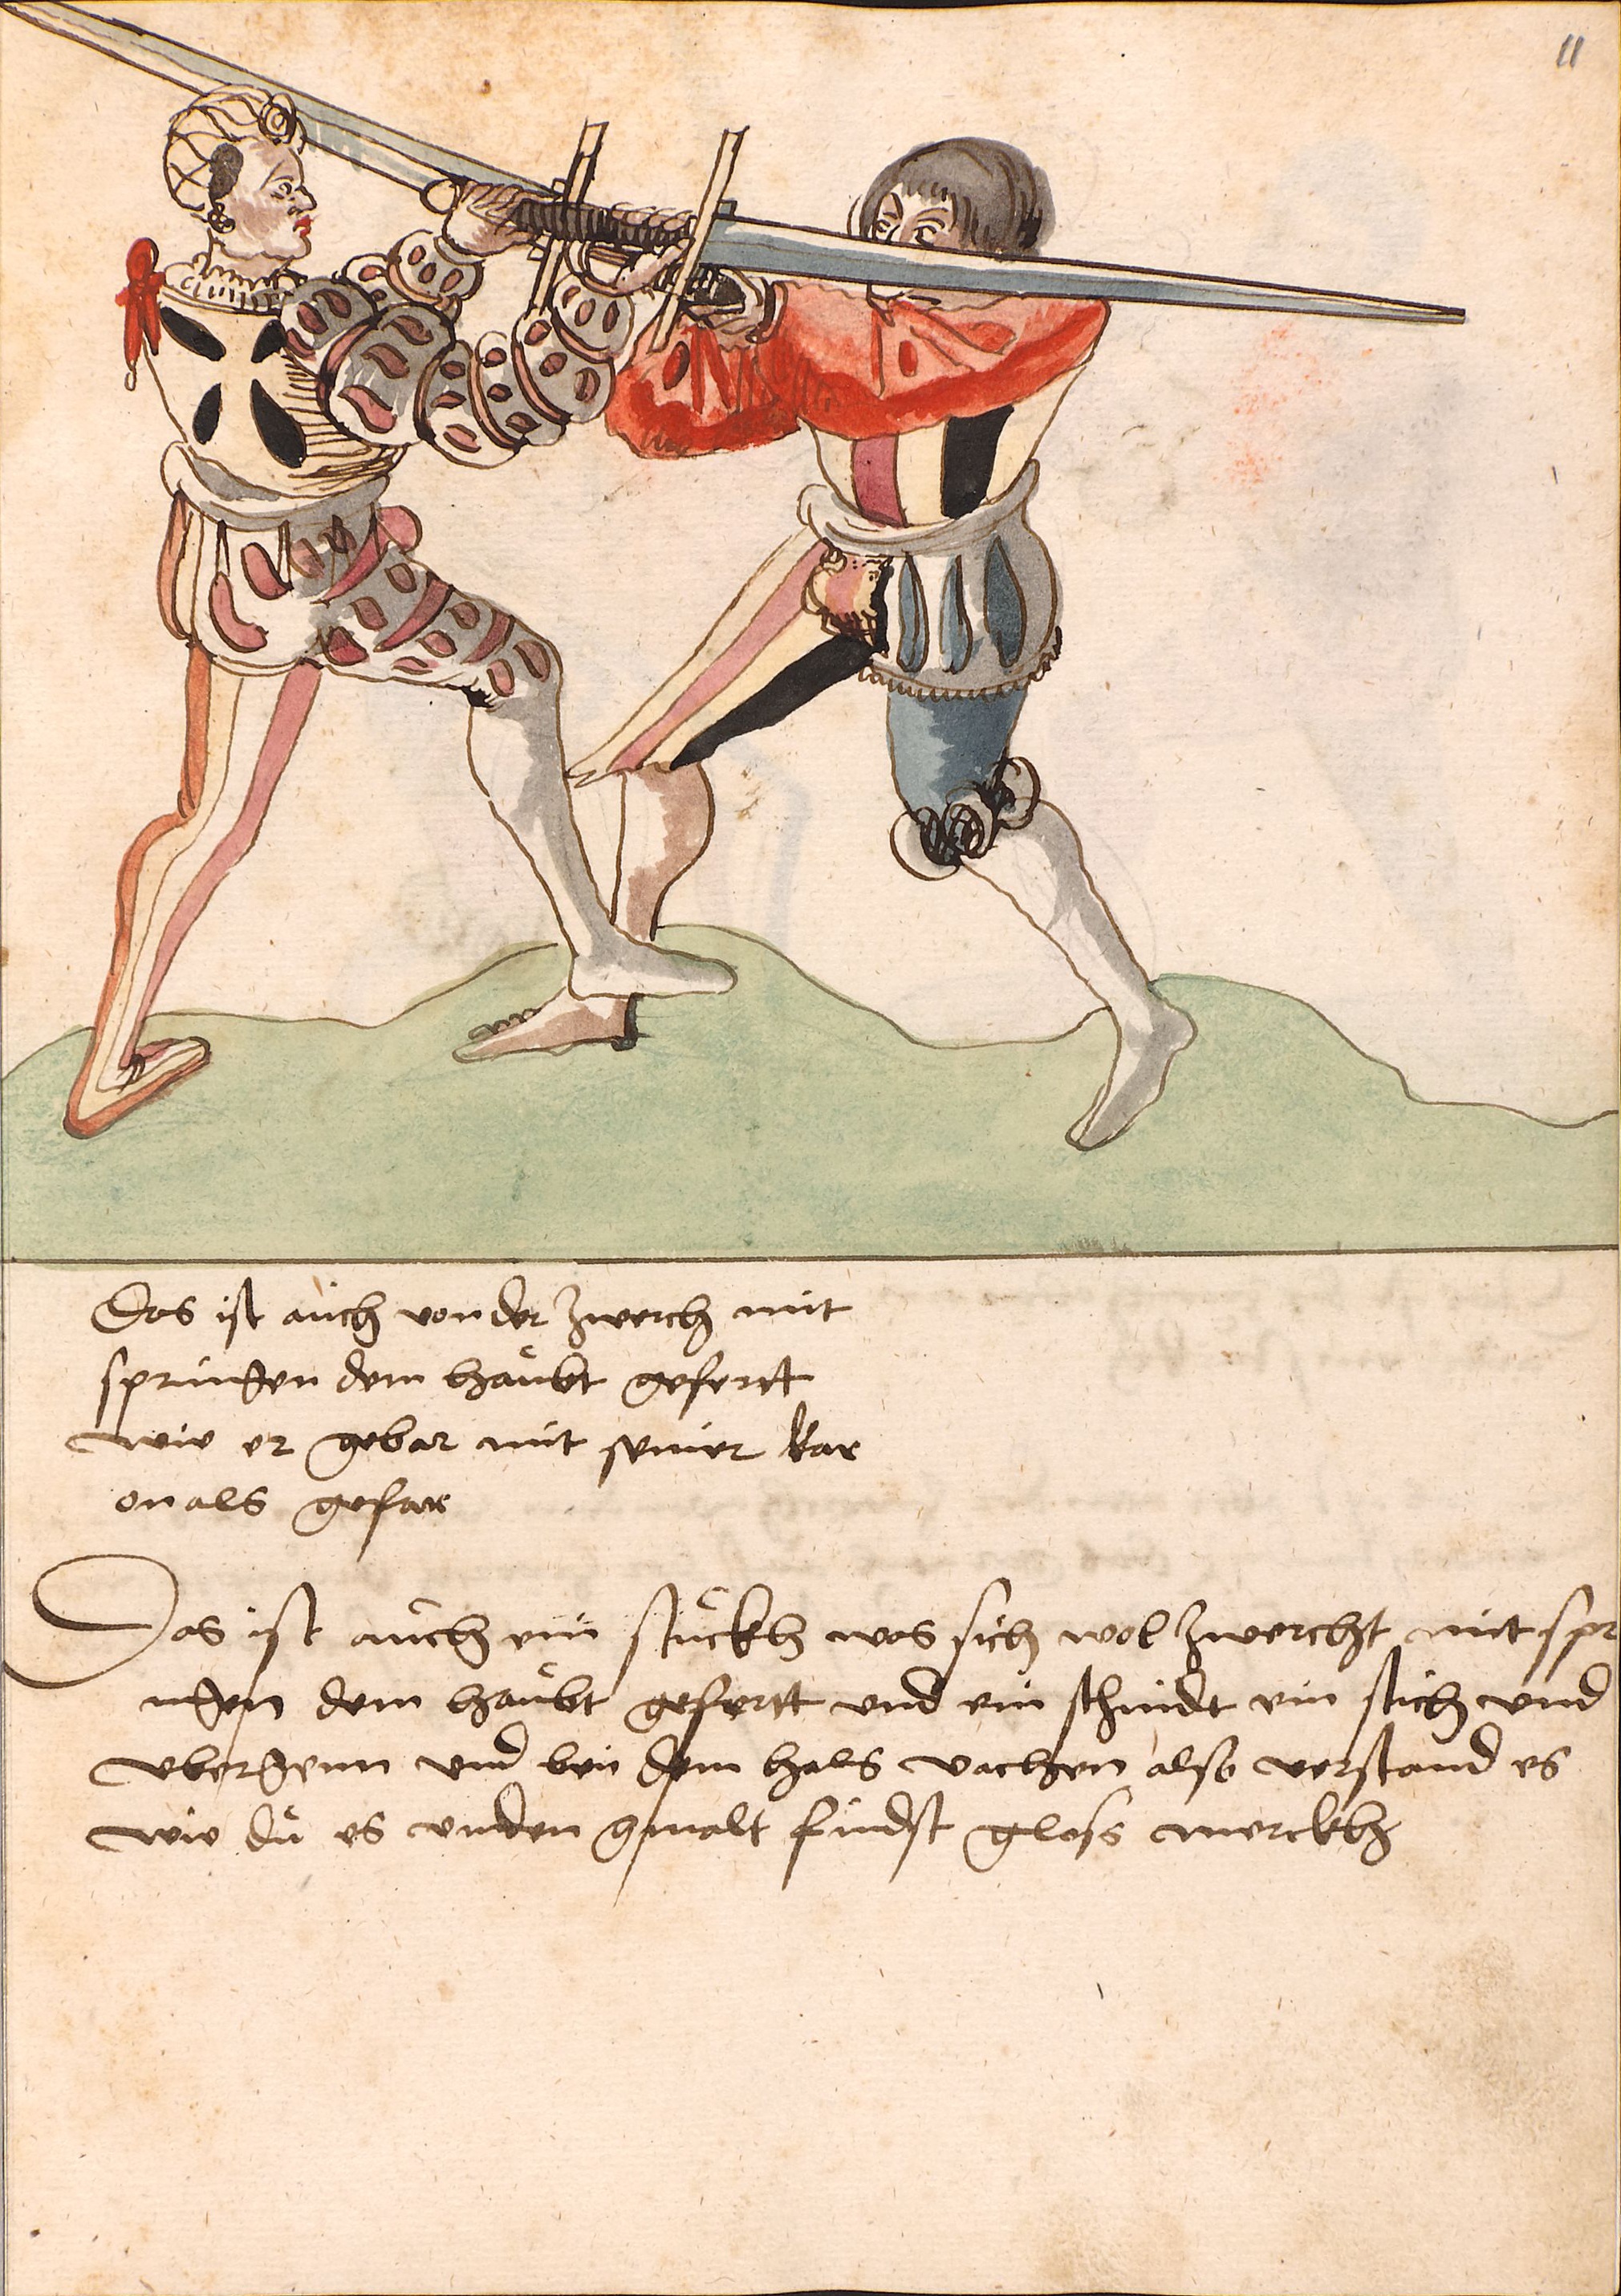 11
Das ist auch von der zwerch mit
springen dem haubt gefertt
wie er gebar mit seiner kar
on als gefar
Das ist auch ein stückh was sich wol zwercht mit spr
ngen dem haubt gefertt vnd ein schnidt ein stich vnd
vbergenn vnd bei dem hals vachen also verstand es
wie du es vnden gmalt findst gloss merckh